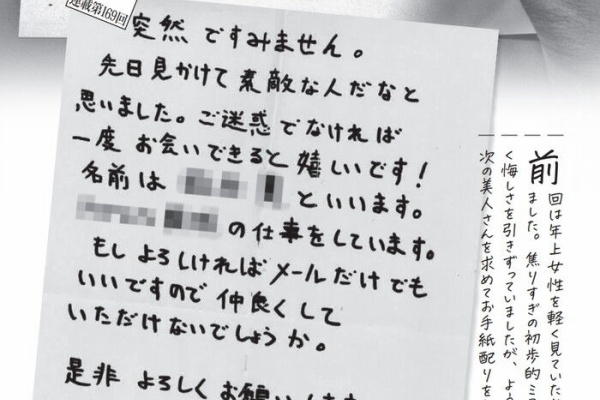 連載第169回
突然 ですみません。
先日見かけて 素敵な人だなと
思いました。ご迷惑 でなければ
一度 お会いできると 嬉しいです！
名前は
といいます。
の仕事をしています。
もし よろしければ メールだけでも
いいですので 仲良くして
いただけないでしょうか。
是非 よろしく お願い
前回は年上女性を軽く見ていた
ました。焦りすぎの初歩的ミ
く悔しさを引きずっていましたが、よ
次の美人さんを求めてお手紙配りを